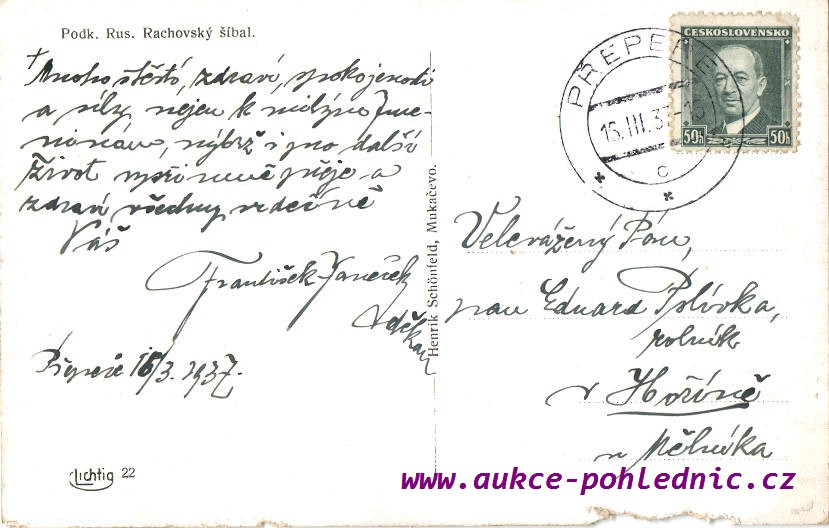 Podk. Rus. Rachovský šíbal.
Mnoho štěstí, zdraví, spokojenosti
a síly nejen k milým Jme-
ninám, nýbrž i pro další
život upřímně přeje a
zdraví všechny srdečně
Váš
František Vaněček
děkan
16/3. 1937.
Lichtig 22
Henrik Schönfeld, Mukačevo.
PŘEPEŘE
16.III.37-16
C
ČESKOSLOVENSKO
50h 50h
Velevážený Pán,
pan Eduard Polívka,
rolník
v Hoříně
u Mělníka
www.aukce-pohlednic.cz